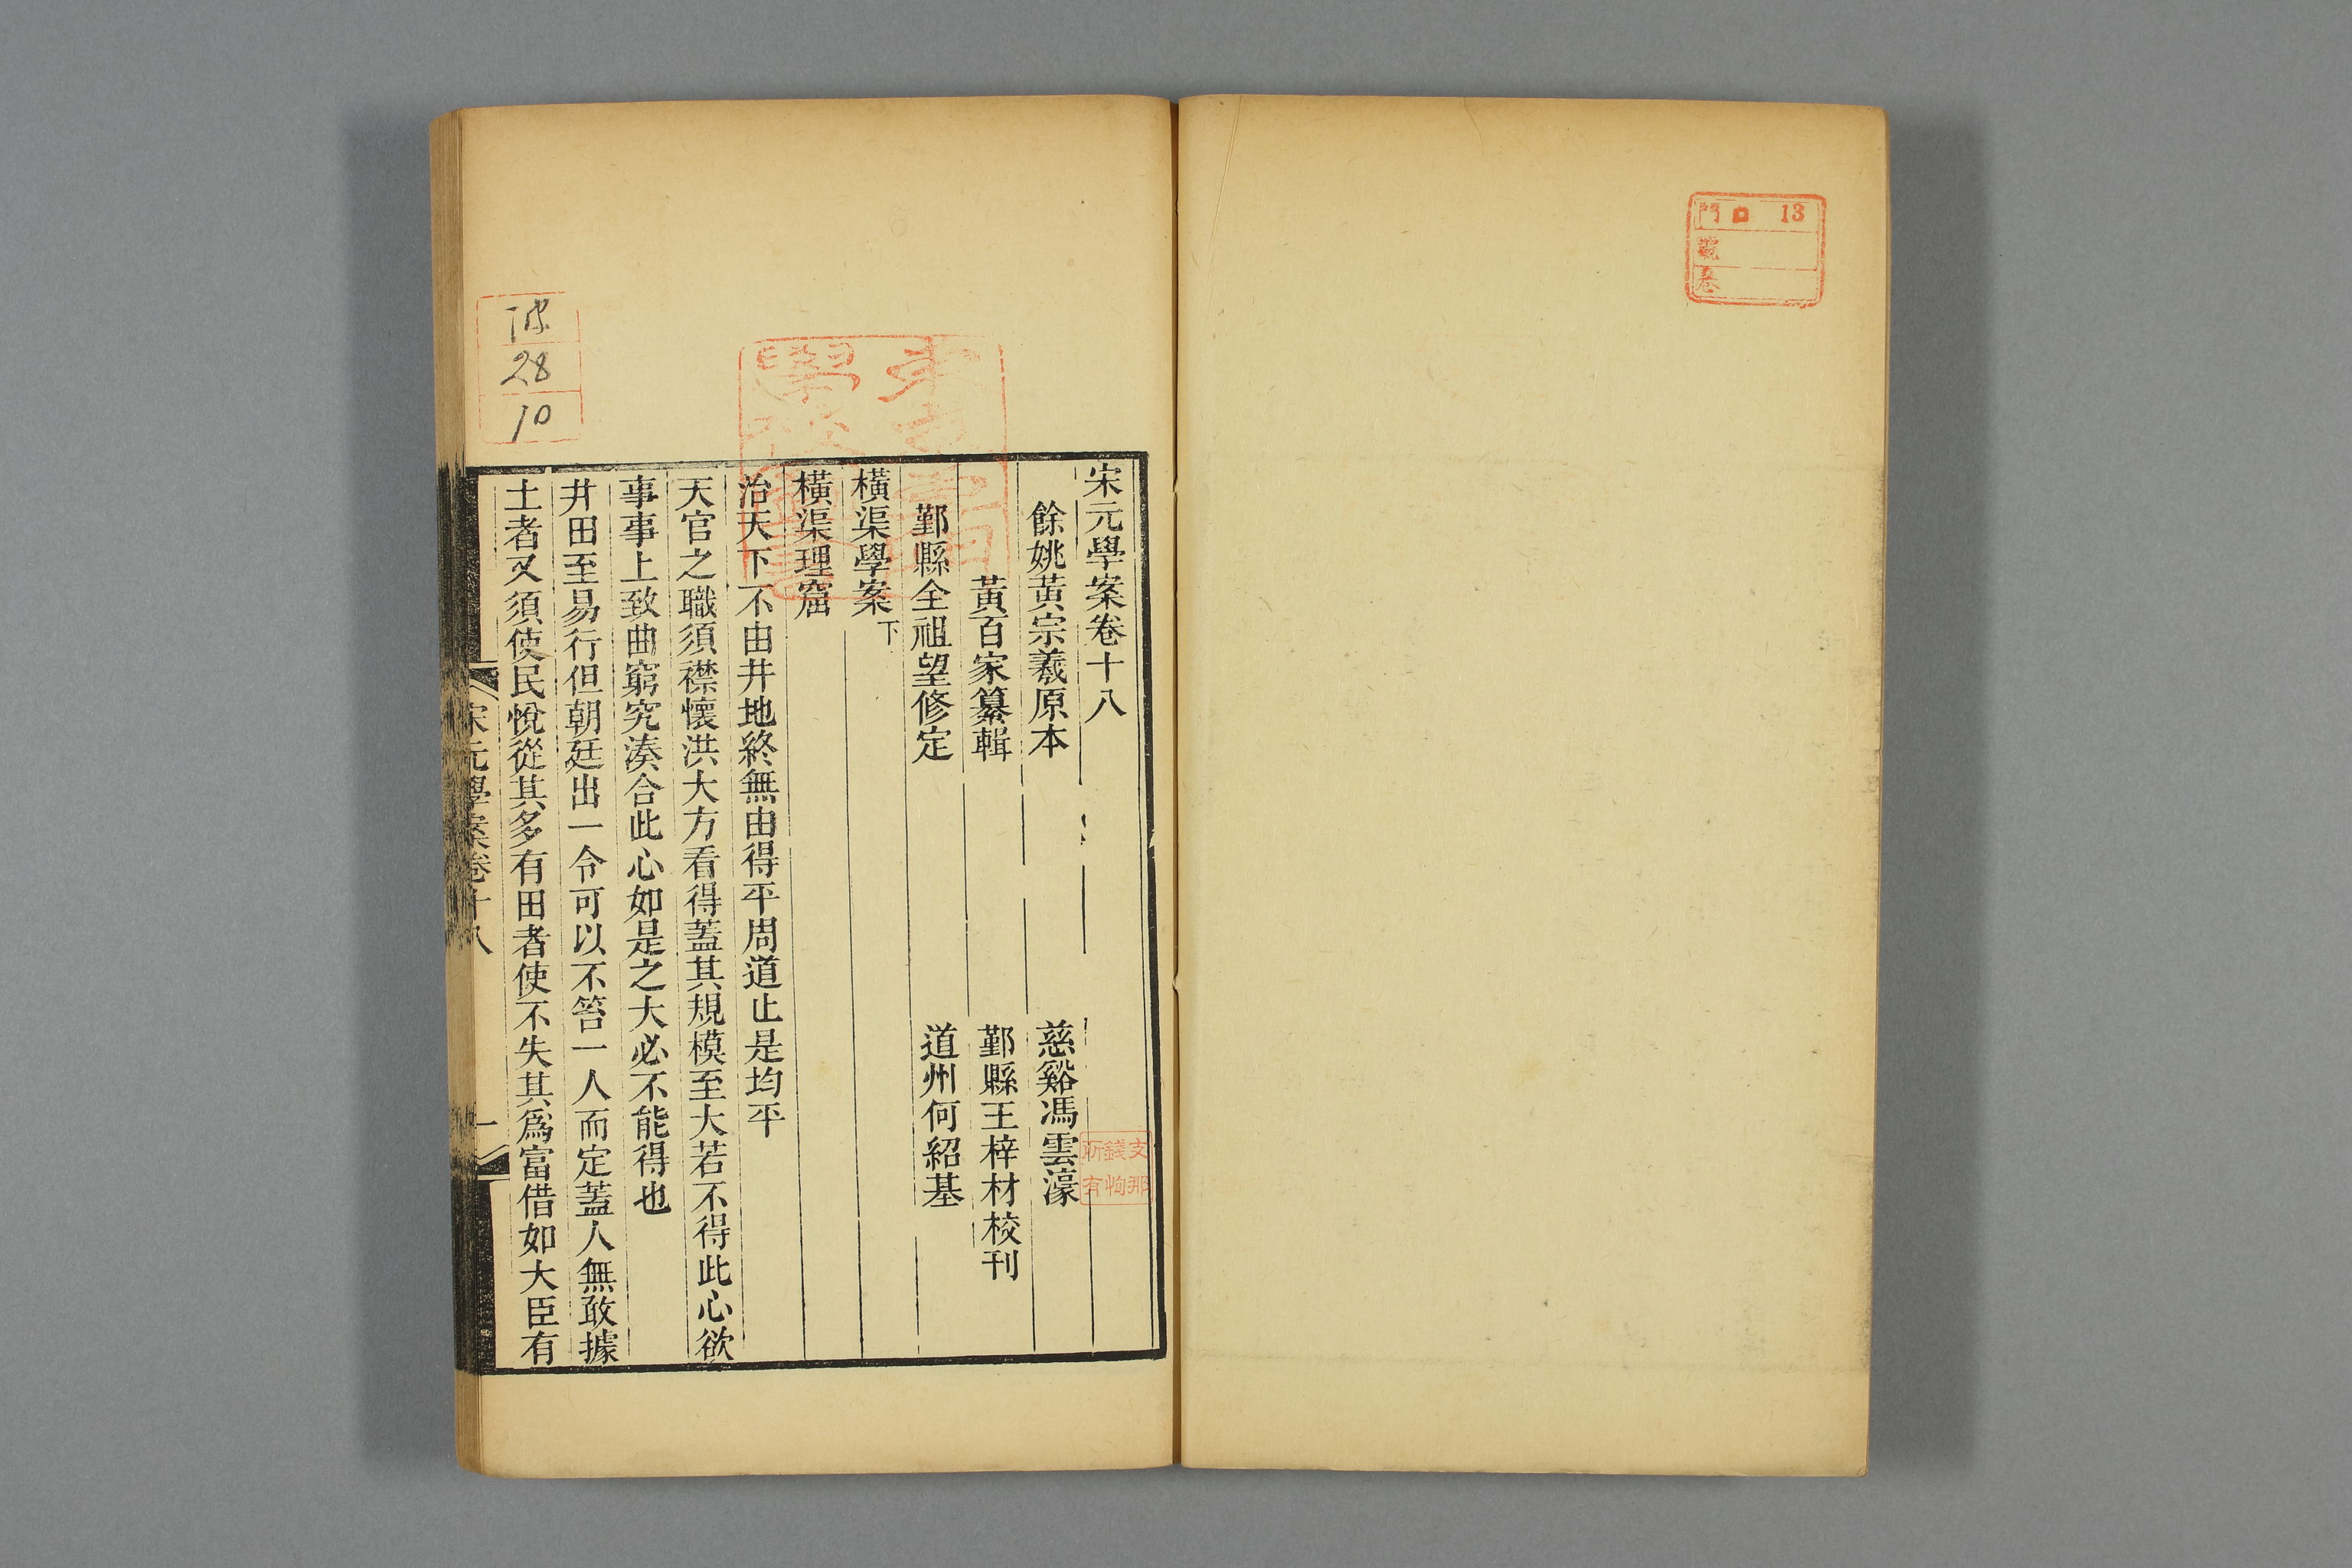 門 13
號
卷
宋元學案卷十八
餘姚黃宗羲原本
慈谿馮雲濠
黃百家纂輯
鄞縣王梓材校刊
鄞縣全祖望修定
道州何紹基
橫渠學案下
橫渠理窟
治天下不由井地終無由得平周道止是均平
天官之職須襟懷洪大方看得蓋其規模至大若不得此心欲
事事上致曲窮究湊合此心如是之大必不能得也
井田至易行但朝廷出一令可以不笞一人而定蓋人無敢據
土者又須使民悅從其多有田者使不失其為富借如大臣有
宋元學案卷十八
一
28
10
支那
錢恂
所有